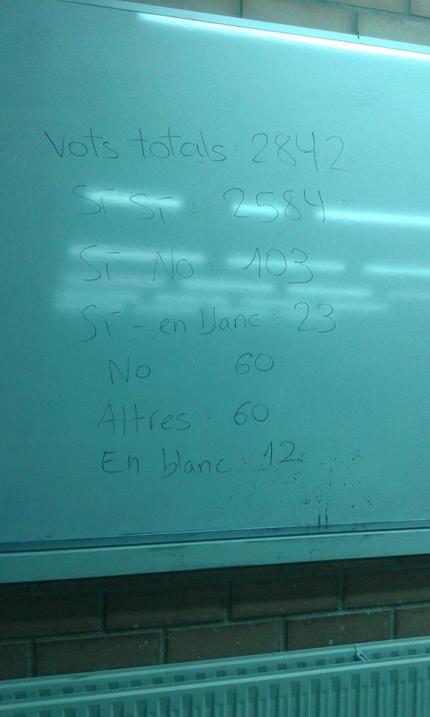 Vots totals: 2842
Sí Sí : 2584
Sí No : 103
Sí - en blanc : 23
No : 60
Altres : 60
En blanc : 12